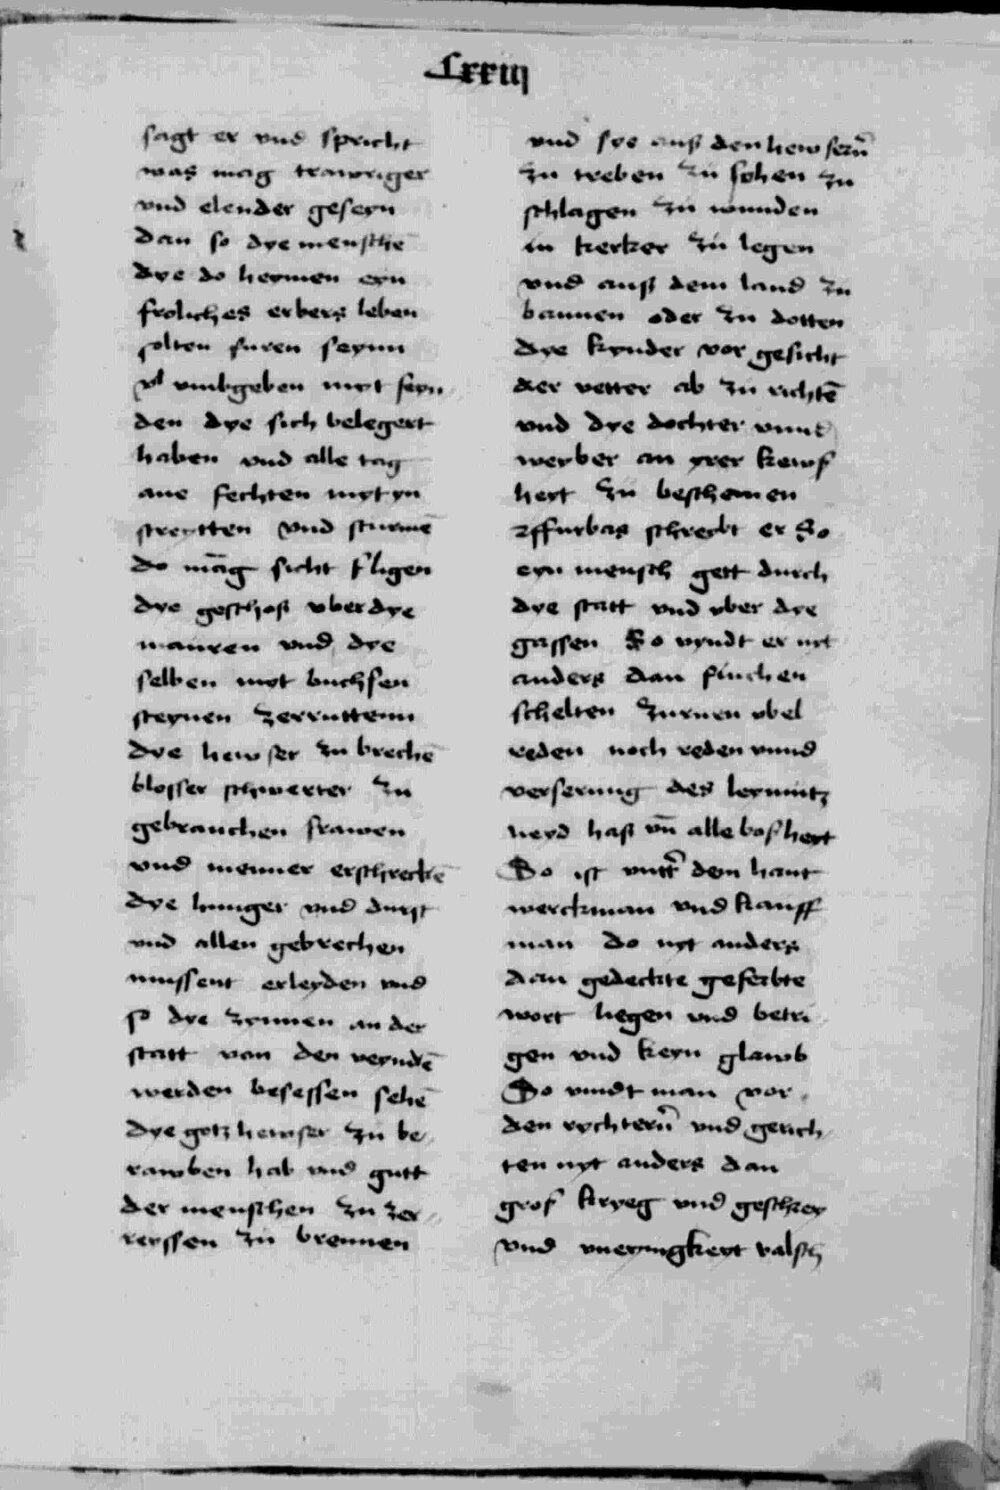 Lxxiij
sagt er vnd spricht
was mag trawriger
vnd elender geseyn
dan so dye mensthē
dye do heymen eyn
froliches erbers leben
solten furen seynn
vl vmbgeben myt feyn
den dye sich belegert
haben vnd alle tag
ane fechten mytyn
streytten vnd sturmē
do māg sicht fligen
dye gesthoß vber dye
mauren vnd dye
selben myt buchsen
steynen zerruttenn
dye hewser zu brechē
blosser schwerter zu
gebrauchen frawen
vnd menner erschreckē
dye hunger vnd durst
vnd allen gebrechen
mussent erleyden vnd
so dye zynnen an der
statt van den veyndē
werden besessen sehē
dye gotzhewser zu be
rawben hab vnd gutt
der menschen zu zer
reyssen zu brennen
vnd sye auß den hewsern̄
zu treben zu sohen zu
schlagen zu wunden
in kerker zu legen
vnd auß dem land zu
bannen oder zu dotten
dye kynder vor gesicht
der vetter ab zu richtē
vnd dye dochter vnnd
weyber an yrer kews
heyt zu beschemen
Effurbas schreybt er So
eyn mensch gett durch
dye statt vnd vber dye
gassen So vyndt er nyt
anders dan fluchen
schelten zurnen vbel
reden noch reden vnnd
verserung des leymutz
neyd haß vn̄ alle bosheyt
So ist vntt̄ dem hant
werckman vnd kauff
man do nyt anders
dan gedeckte geferbte
wort liegen vnd betri
gen vnd keyn glawb
So vindt man vor
den rychtern̄ vnd gerich
ten nyt anders dan
gros kryeg vnd geschrey
vnd vneynigkeyt valsch